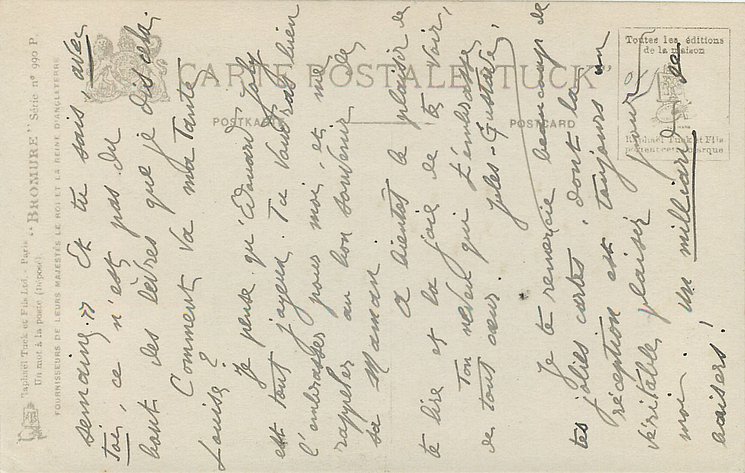 Raphaël Tuck et Fils Ltd - Paris
Un mot à la poste (Déposé)
"BROMURE" Série n° 990 P.
FOURNISSEURS DE LEURS MAJESTÉS LE ROI ET LA REINE D'ANGLETERRE.
CARTE POSTALE "TUCK"
POSTKAART
POSTCARD
Toutes les éditions
de la maison
Raphaël Tuck et Fils
portent cette marque
semaine. » Et tu sais, avec
toi, ce n'est pas du
bout des lèvres que je dis cela.
Comment va ma Tante
Louise ?
Je pense qu'Edouard Joly
est tout joyeux. Tu voudras bien
l'embrasser pour moi, et me
rappeler au bon souvenir de
sa Maman.
A bientôt le plaisir de
te lire et la joie de te voir,
Ton neveu qui t'embrasse
de tout cœur.
Jules-Gustave,
Je te remercie beaucoup de
tes jolies cartes, dont la
réception est toujours un
véritable plaisir pour
moi. Un milliard de
baisers !